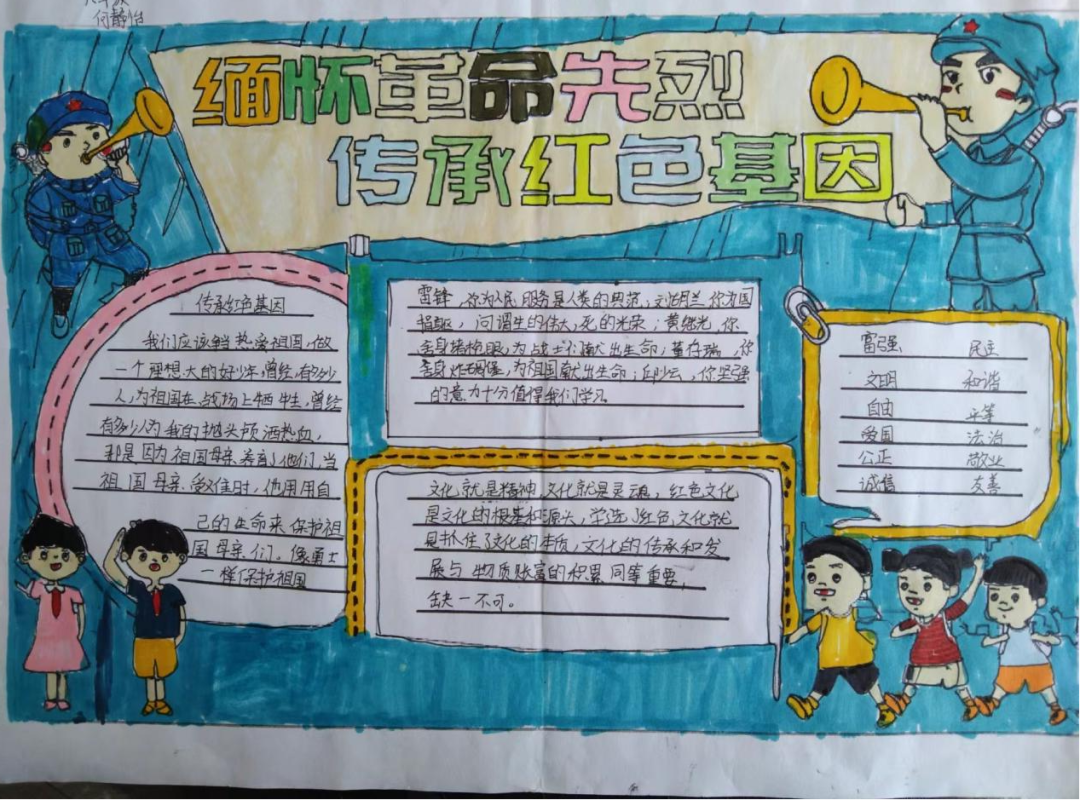 何静怡
缅怀革命先烈
传承红色基因
传承红色基因
我们应该当热爱祖国,做
一个理想大的好少年,曾经,有多少
人,为祖国在战场上牺牲,曾经
有多少人为我的抛头颅洒热血,
那是因为祖国母亲养育了他们,当
祖国母亲受难时,他用用自
己的生命来保护祖
国母亲们,像勇士
一样保护祖国
雷锋,你为人民服务是人类的典范;刘胡兰你为国
捐躯,问谓生的伟大,死的光荣;黄继光,你
舍身堵枪眼,为战士们献出生命;董存瑞,你
舍身炸碉堡,为祖国献出生命;邱少云,你坚强
的意力十分值得我们学习
文化就是精神,文化就是灵魂,红色文化
是文化的根基和源头,学选了红色文化就
具抓住了文化的本质,文化的传承和发
展与物质财富的积累同等重要,
缺一不可。
富强 民主
文明 和谐
自由 平等
爱国 法治
公正 敬业
诚信 友善